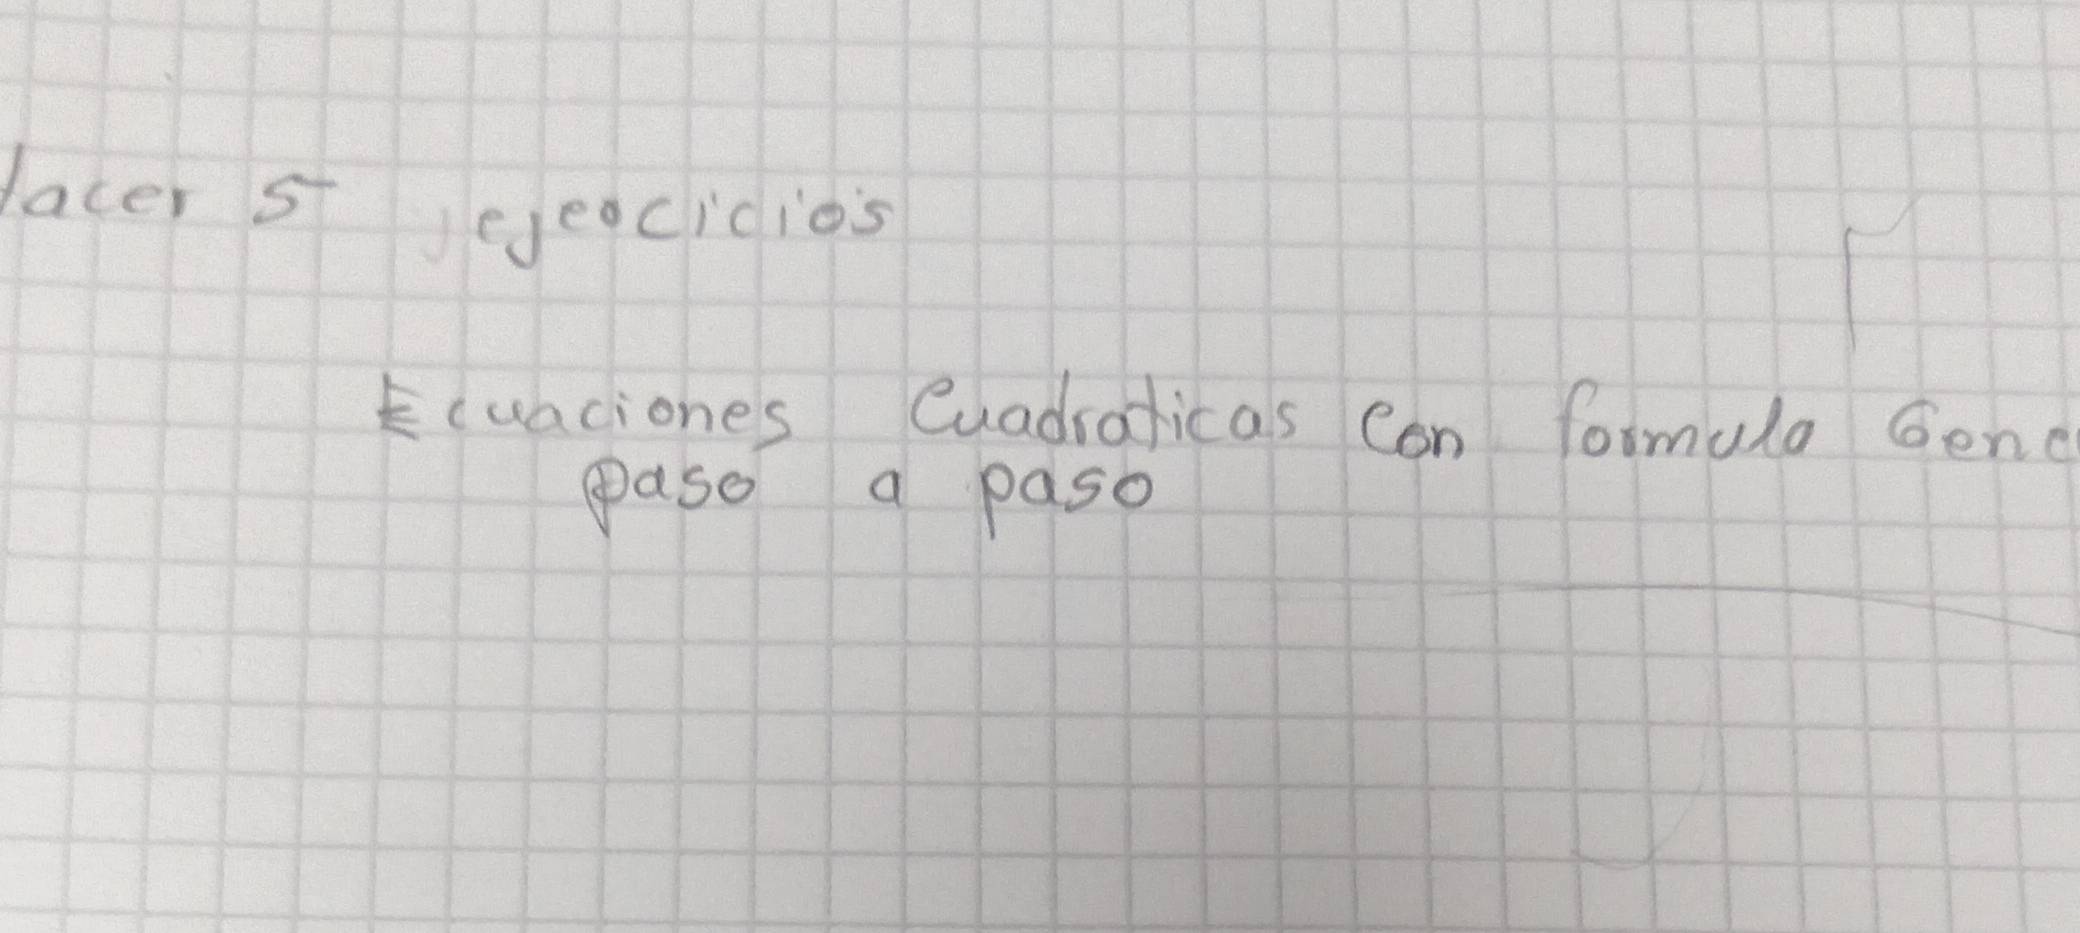 Hacer 5 ejercicios
Ecuaciones Cuadraticas con formula Gene
paso a paso